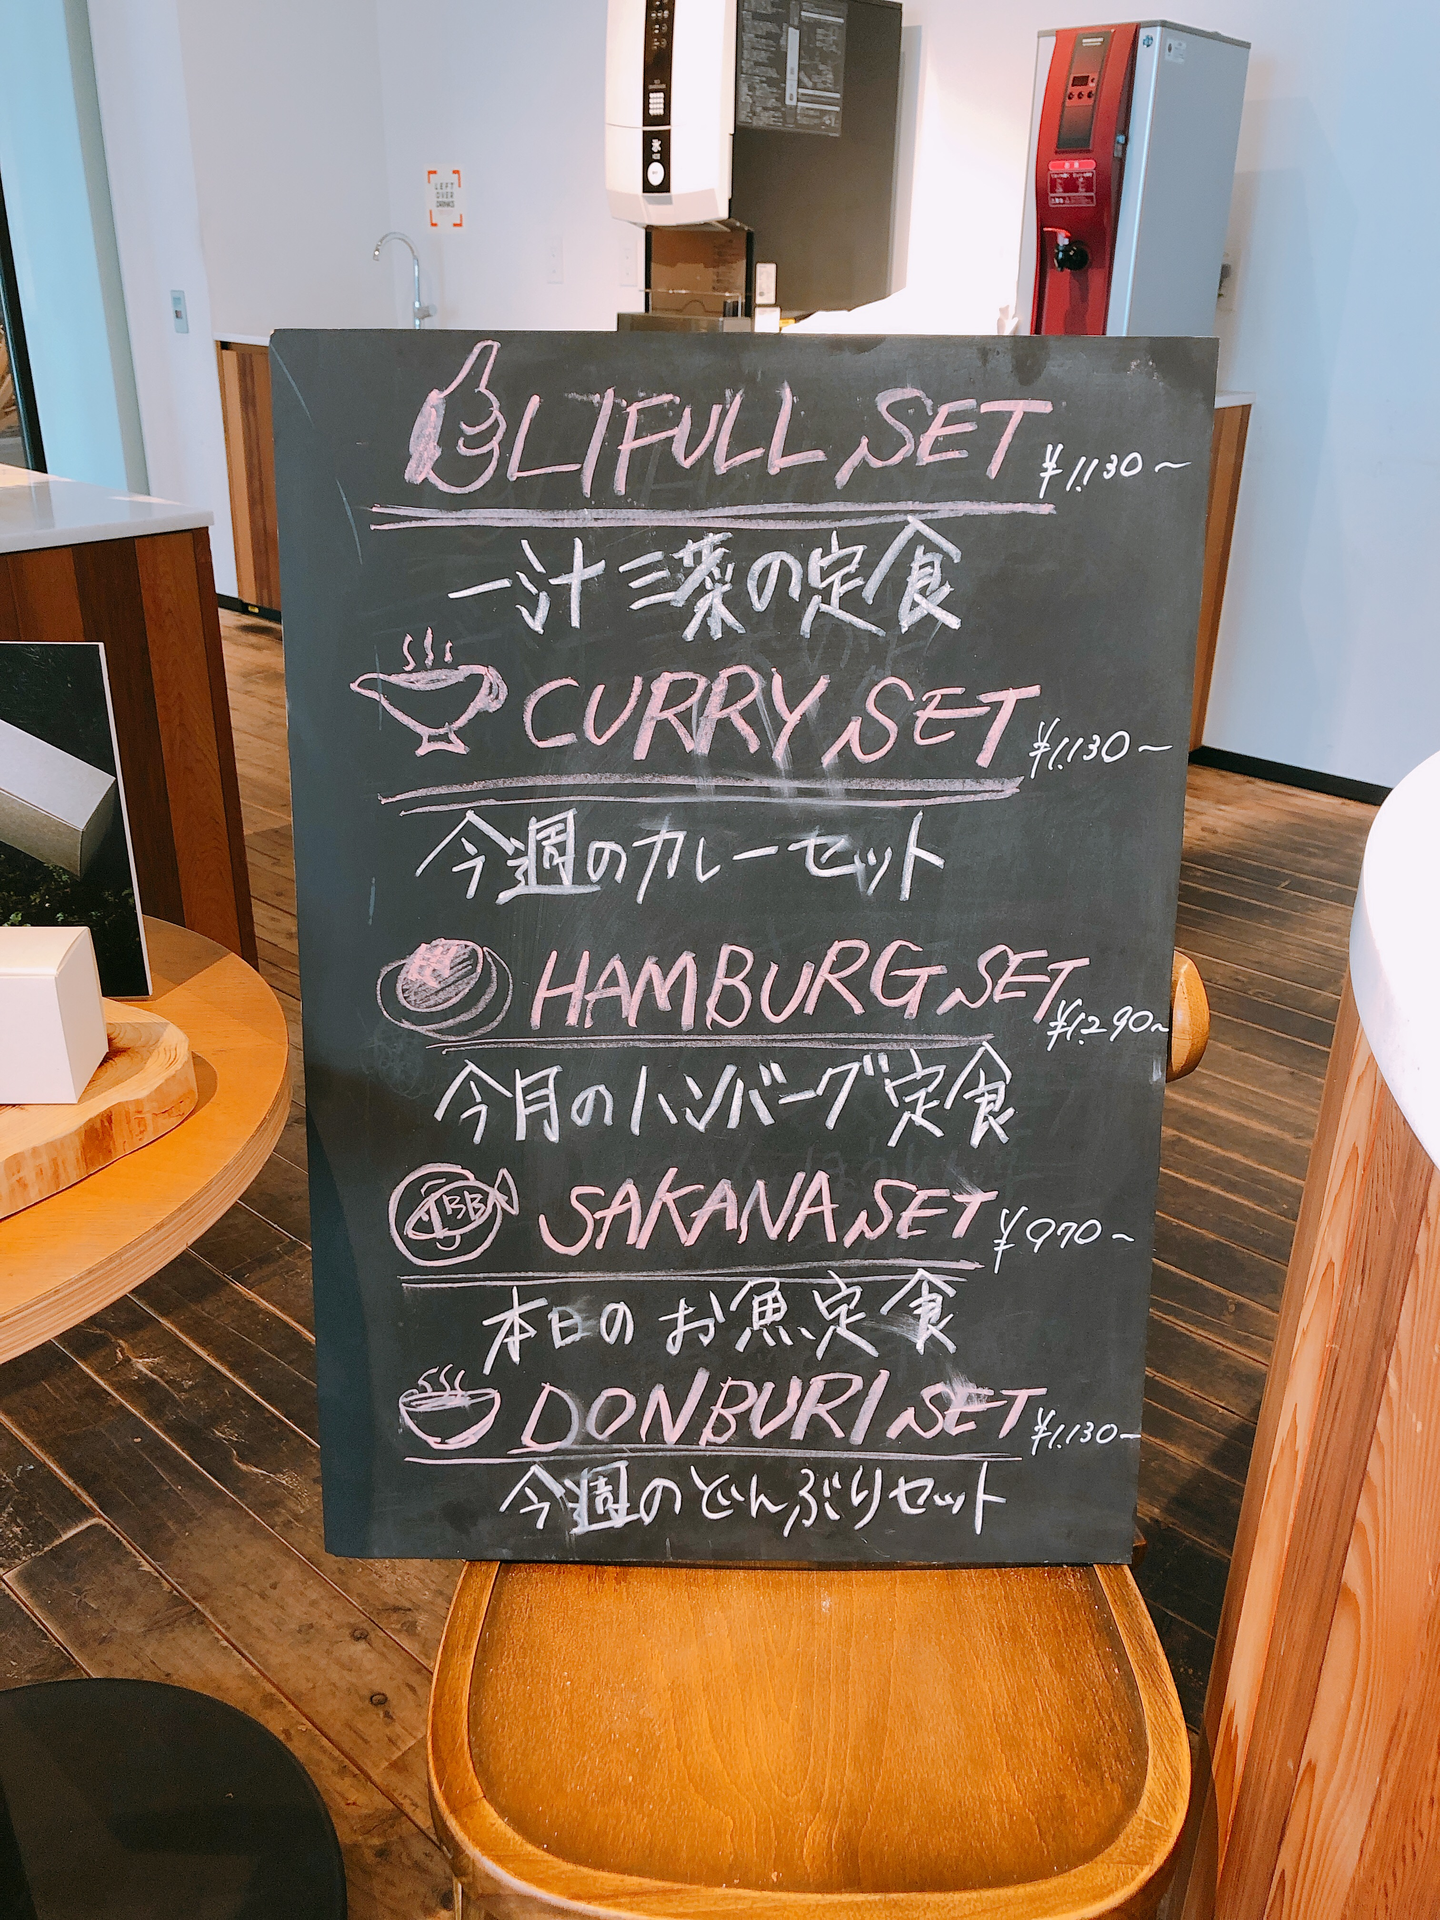 LEFT
OVER
DRINKS
LIFULL SET ¥1.130〜
一汁三菜の定食
CURRY SET ¥1.130〜
今週のカレーセット
HAMBURG SET ¥1.290〜
今月のハンバーグ定食
SAKANA SET ¥970〜
本日のお魚定食
DONBURI SET ¥1.130〜
今週のどんぶりセット